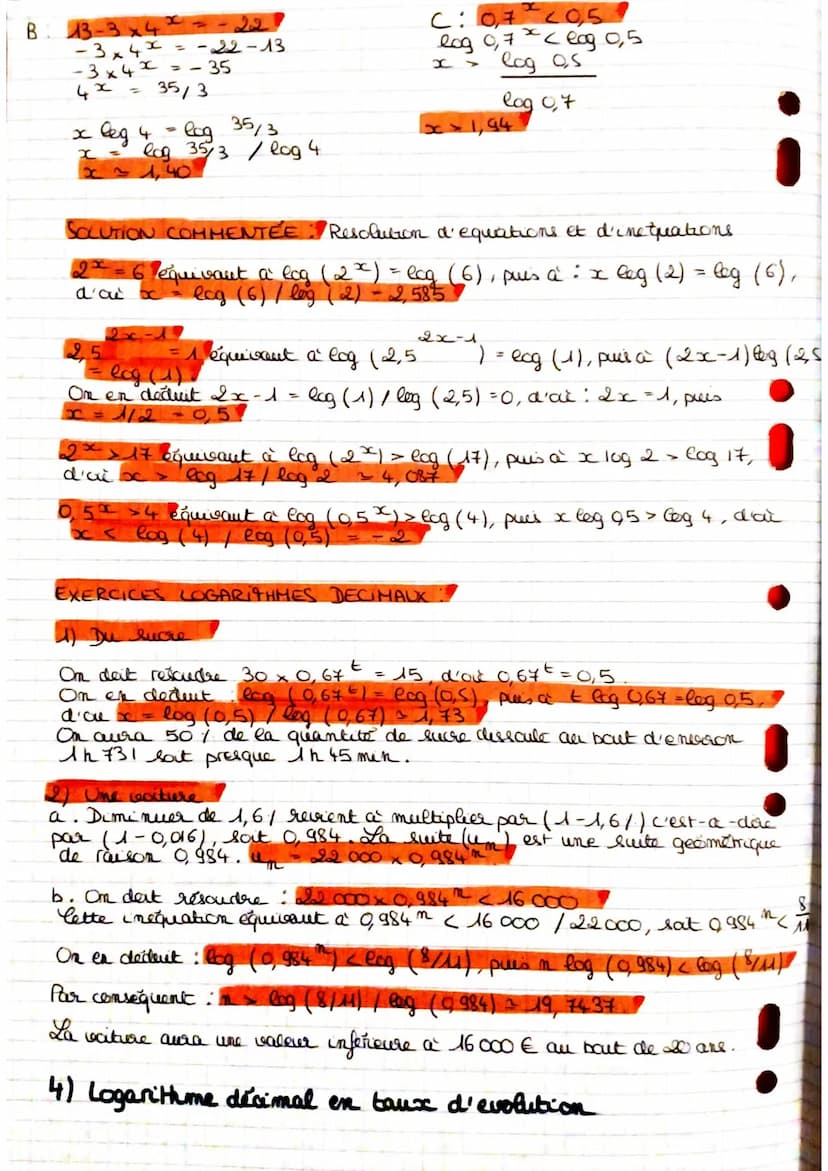 B : 13-3 x 4^x = -22
-3 x 4^x = -22-13
-3 x 4^x = -35
4^x = 35/3
x log 4 = log 35/3
x = log 35/3 / log 4
x ≃ 1,40
C : 0,7^x < 0,5
log 0,7^x < log 0,5
x > log 0,5
log 0,7
x > 1,94
SOLUTION COMMENTÉE : Resolution d'equations et d'inequations
2^x = 6 équivaut à log (2^x) = log (6), puis à : x log (2) = log (6),
d'où x = log (6) / log (2) = 2,585
2,5^2x-1 = 1 équivaut à log (2,5^2x-1) = log (1), puis à (2x-1) log (2,5
= log (1)
On en déduit 2x-1 = log (1) / log (2,5) = 0, d'où : 2x = 1, puis
x = 1/2 = 0,5
2^x > 17 équivaut à log (2^x) > log (17), puis à x log 2 > log 17,
d'où x > log 17 / log 2 ≃ 4,087
0,5^x > 4 équivaut à log (0,5^x) > log (4), puis x log 0,5 > log 4, d'où
x < log (4) / log (0,5) = -2
EXERCICES LOGARITHMES DECIMAUX :
1) Du sucre
On doit résoudre 30 x 0,67^t = 15, d'où 0,67^t = 0,5.
On en deduit : log (0,67^t) = log (0,5), puis à t log 0,67 = log 0,5.
d'où x = log (0,5) / log (0,67) ≃ 1,73
On aura 50 % de la quantité de sucre dissoute au bout d'environ
1h 731 soit presque 1h 45 min.
2) Une voiture
a. Diminuer de 1,6% revient à multiplier par (1-1,6%) c'est-a-dire
par (1-0,016), soit 0,984. La suite (u_n) est une suite géométrique
de raison 0,984. u_n = 22 000 x 0,984^n
b. On doit résoudre : 22 000 x 0,984^n < 16 000
Cette inéquation équivaut à 0,984^n < 16 000 / 22 000, soit 0,984^n < 8/11
On en déduit : log (0,984^n) < log (8/11), puis n log (0,984) < log (8/11)
Par conséquent : n > log (8/11) / log (0,984) ≃ 19,7437.
La voiture aura une valeur inférieure à 16 000 € au bout de 20 ans.
4) Logarithme décimal en taux d'evolution